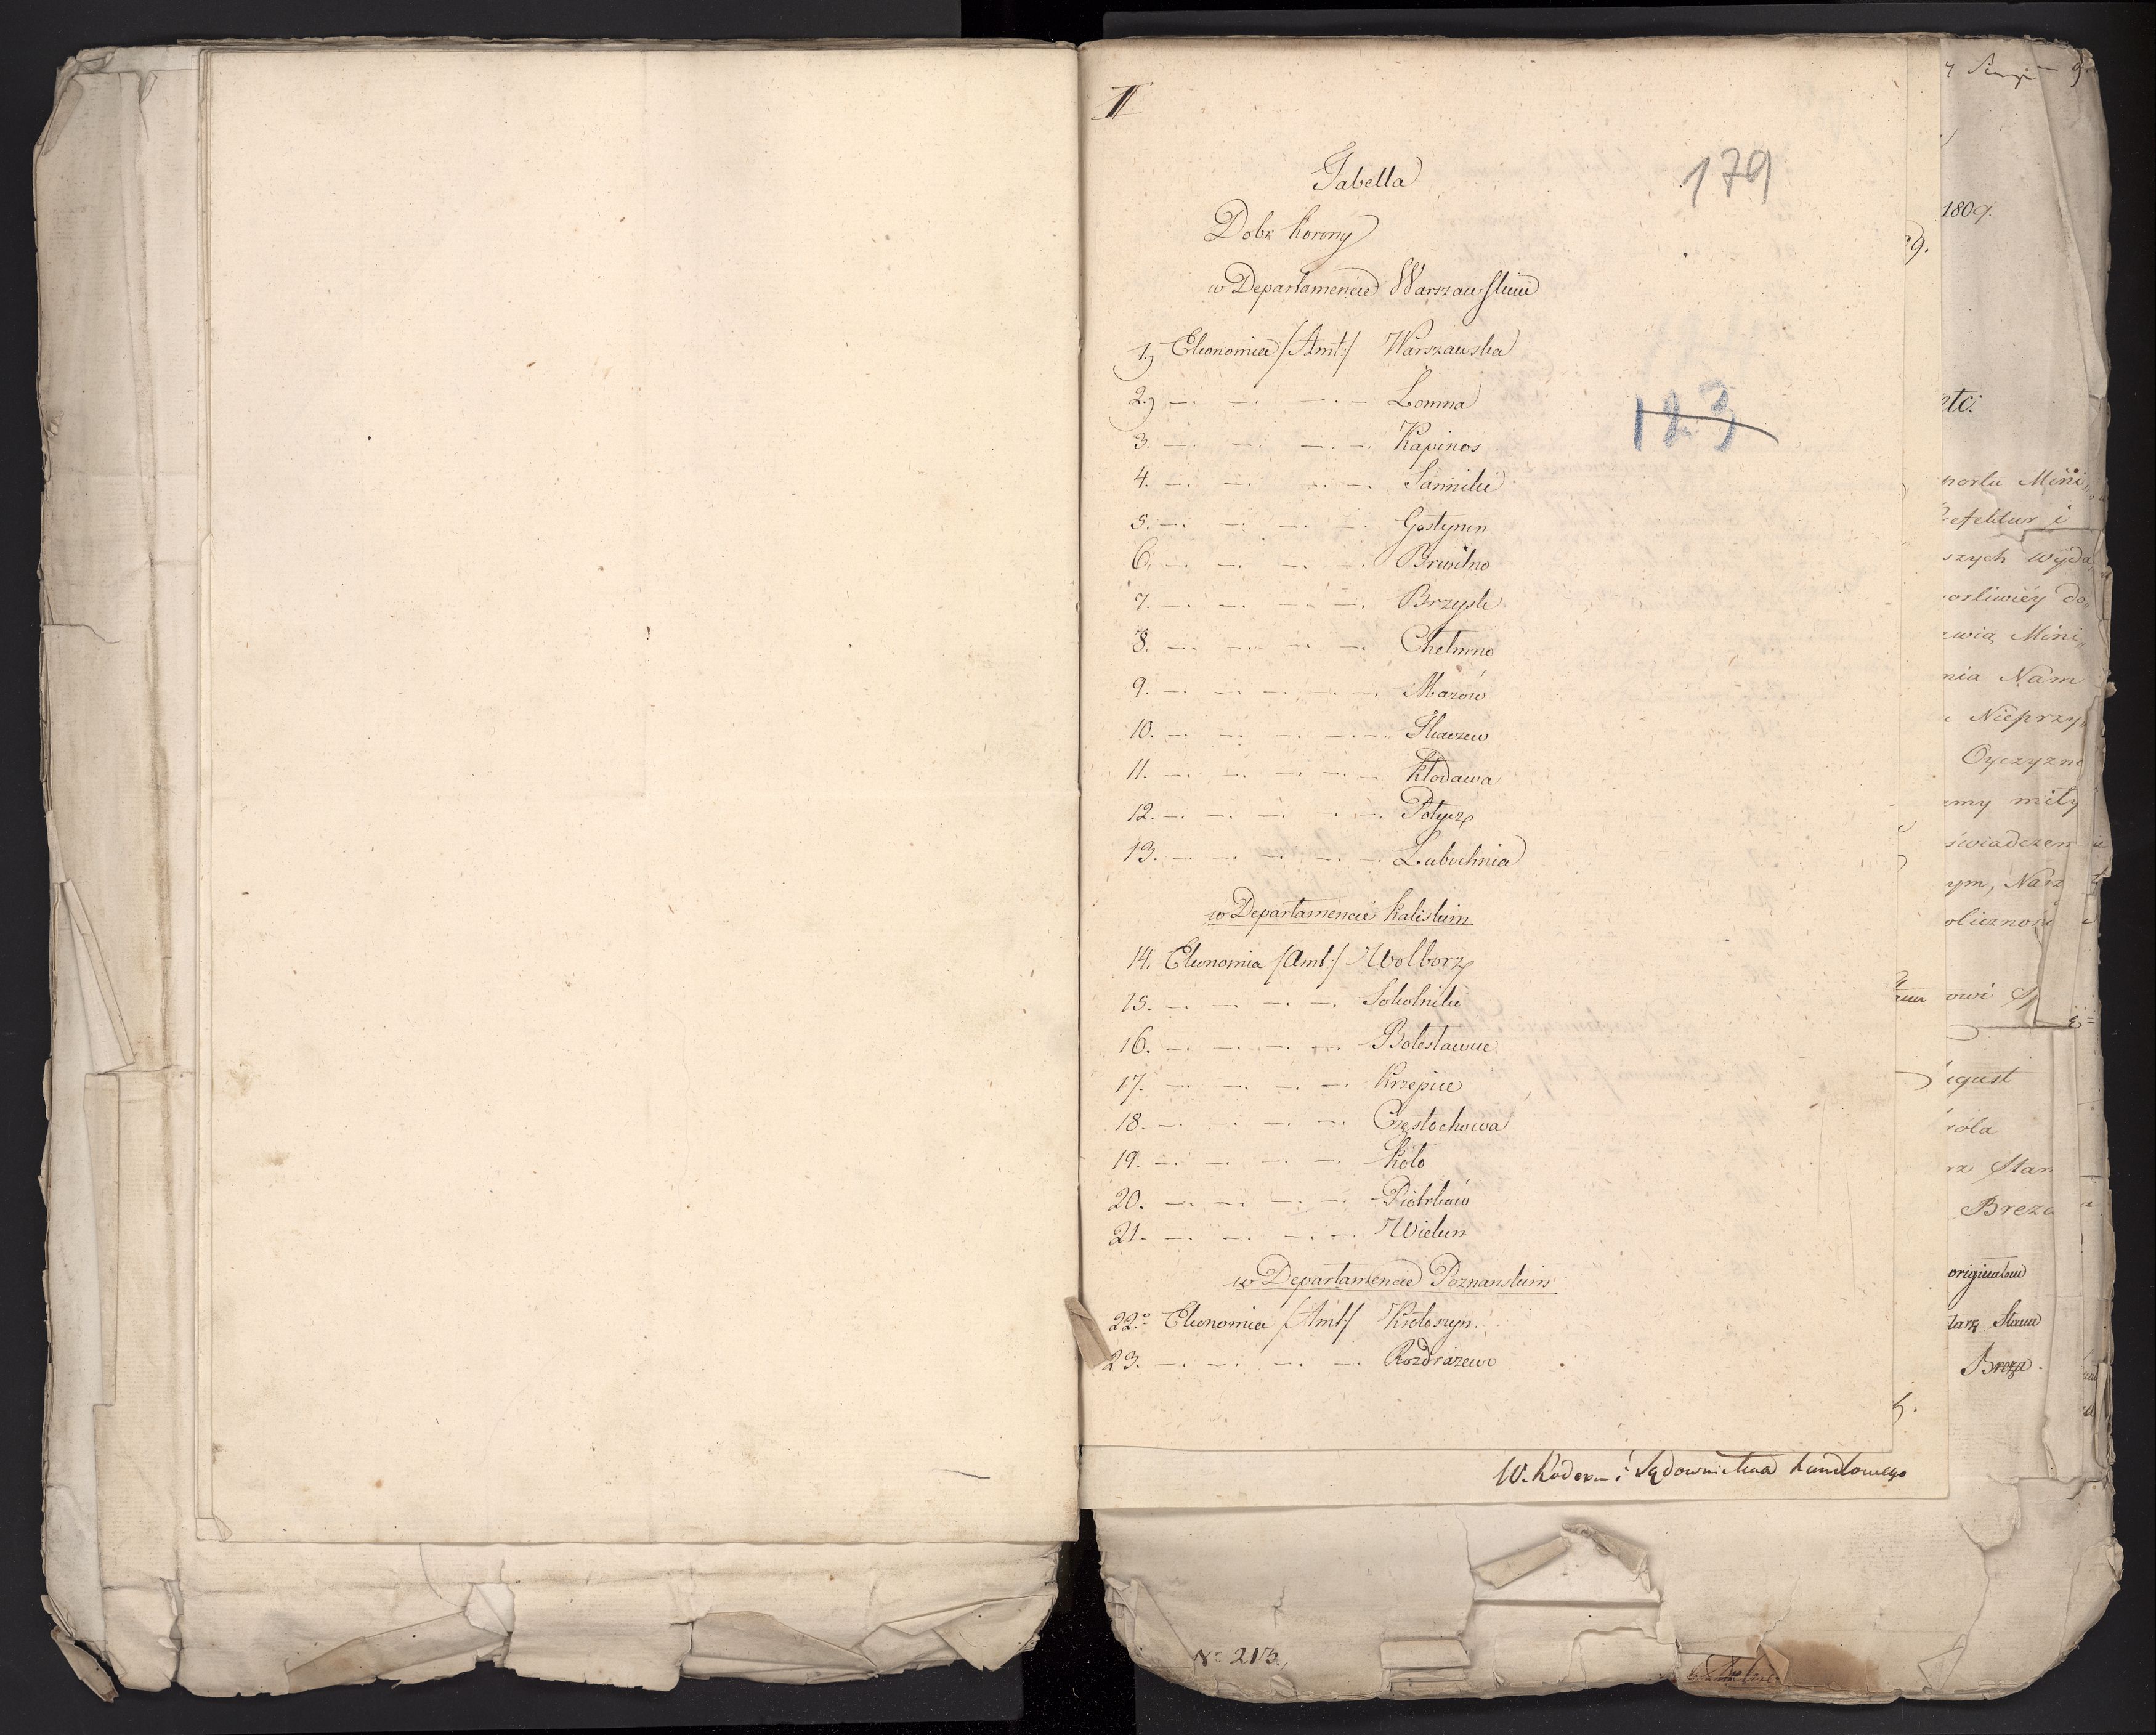 II
179
Tabella
Dobr Korony
w Departamencie Warszawskim
1.) Ekonomia /Amt:/ Warszawska
2.) —. —. —. — Łomna
123
3. —. —. —. —. Kapinos
4. —. —. —. —. Sanniki
5. —. —. —. —. Gostynin
6. —. —. —. —. Brwilno
7. —. —. —. —. Brzysk
8. —. —. —. —. Chełmno
9. —. —. —. —. —. Mazów
10. —. —. —. —. —. Tkaczew
11. —. —. —. —. — Kłodawa
12. —. —. —. —. —. Potycz
13. —. —. —. —. —. Lubochnia
w Departamencie Kaliskim
14. Ekonomia /Amt:/ Wolborz
15. —. —. —. —. Sokolniki
16. —. —. —. —. Bolesławiec
17. —. —. —. —. Krzepice
18. —. —. —. —. Częstochowa
19. —. —. —. —. Koło
20. —. —. —. —. Piotrków
21. —. —. —. —. Wielun
w Departamencie Poznanskim
22. Ekonomia /Amt:/ Krotoszyn.
23. —. —. —. —. Rozdrazewo
1809.
etc.
portu Mini
refektur i
szych wyda
orliwiéy do
zwią Mini
nia Nam
Nieprzy
Oyczyzne
my miły
świadczen
ym, Nasz
oliczno
owi
ugust
róla
rz Stan
Breza
originałem
tarz Stanu
Breza.
W. Kodex. i Sądownictwa handlowego
No 213.